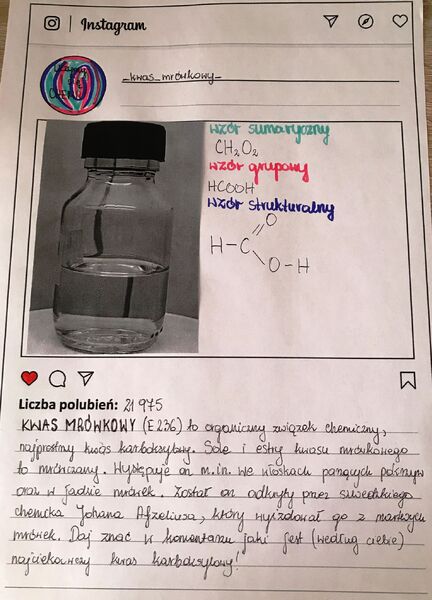 Instagram
_kwas_mrówkowy_
wzór sumaryczny
CH₂O₂
wzór grupowy
HCOOH
wzór strukturalny
O
H-C
O-H
Liczba polubień: 21 975
KWAS MRÓWKOWY (E 236) to organiczny związek chemiczny,
najprostszy kwas karboksylowy. Sole i estry kwasu mrówkowego
to mrówczany. Występuje on m.in. we włoskach parzących pokrzyw
oraz w jadzie mrówek. Został on odkryty przez szwedzkiego
chemika Johana Afzeliusa, który wyizolował go z martwych
mrówek. Daj znać w komentarzu jaki jest (według ciebie)
najciekawszy kwas karboksylowy!